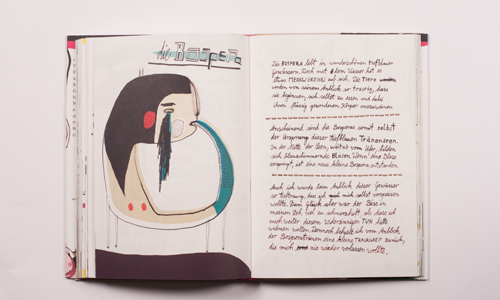 die Bospera
Die BOSPERA lebt in wunderschönen tiefblauen
Gewässern. Doch mit dem Wasser hat es
etwas MERKWÜRDIGES auf sich. Die Tiere
werden von seinem Anblick so traurig, dass
sie beginnen, sich selbst zu essen und dabei
ihren flüssig gewordenen Körper auszuweinen.
Anscheinend sind die Bosperas somit selbst
der Ursprung dieser tiefblauen Tränenseen.
In der Mitte der Seen, weitab vom Ufer, bilden
sich blauschimmernde Blasen. Wenn eine Blase
zerspringt, ist eine neue kleine Bospera entstanden.
Auch ich wurde beim Anblick dieser Gewässer
so hoffnungslos, dass ich mich selbst verspeisen
wollte. Zum Glück aber war der Biss in
meinen Zeh viel zu schmerzhaft, als dass ich
mich weiter diesem widersinnigen TUN hätte
widmen wollen. Dennoch behielt ich vom Anblick
der Bosperatränen eine kleine TRAURIGKEIT zurück,
die mich nie wieder verlassen wollte.